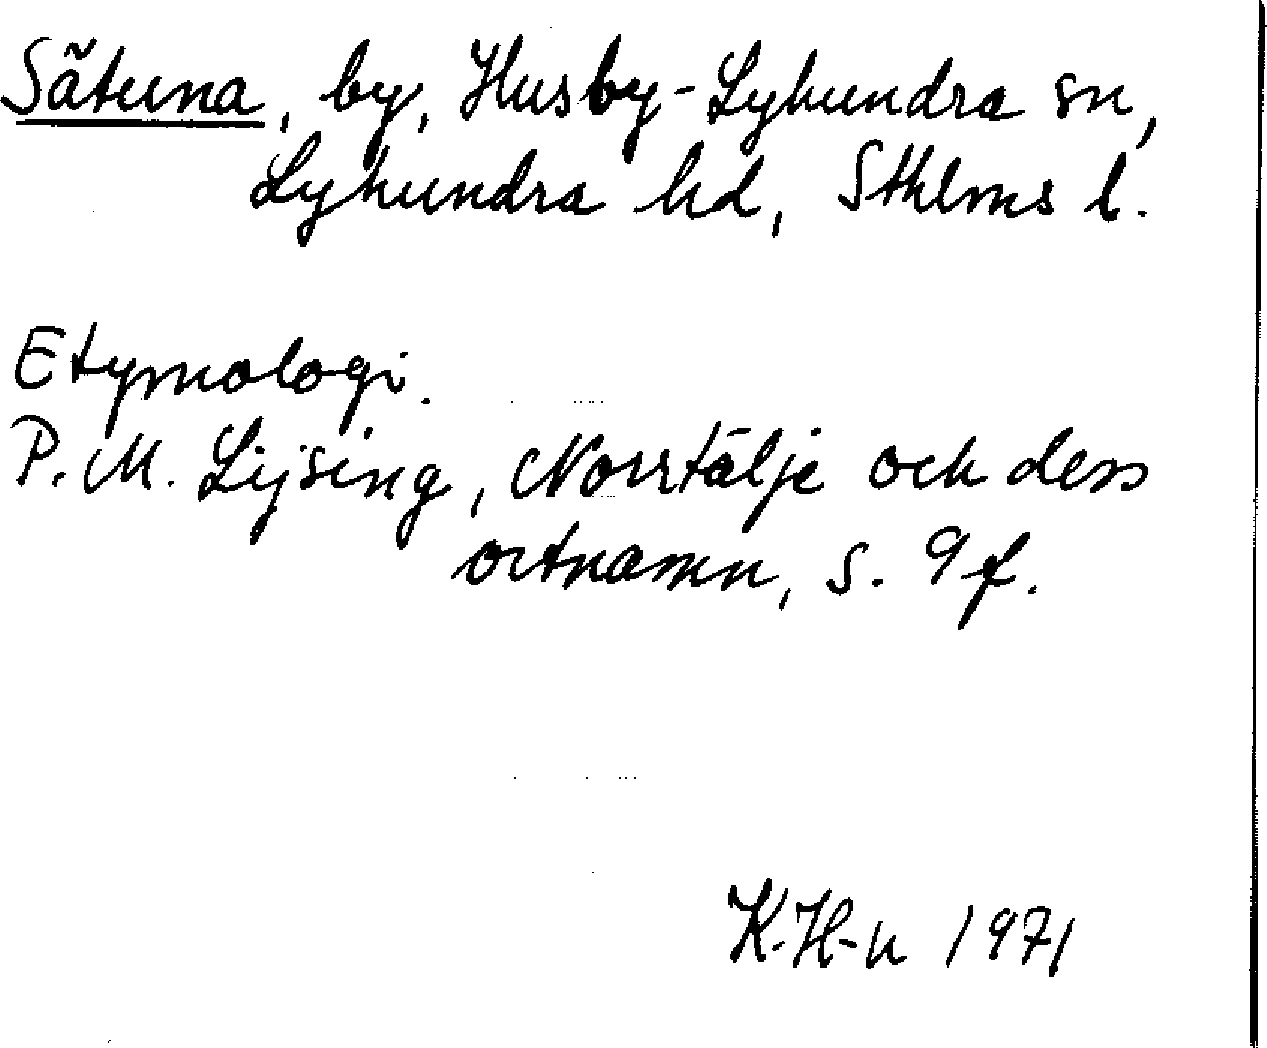 Sätuna, by, Husby-Lyhundra sn,
Lyhundra hd, Sthlms l.
Etymologi.
P. M. Lijsing, Norrtälje och dess
ortnamn, s. 9 f.
K.H-n 1971